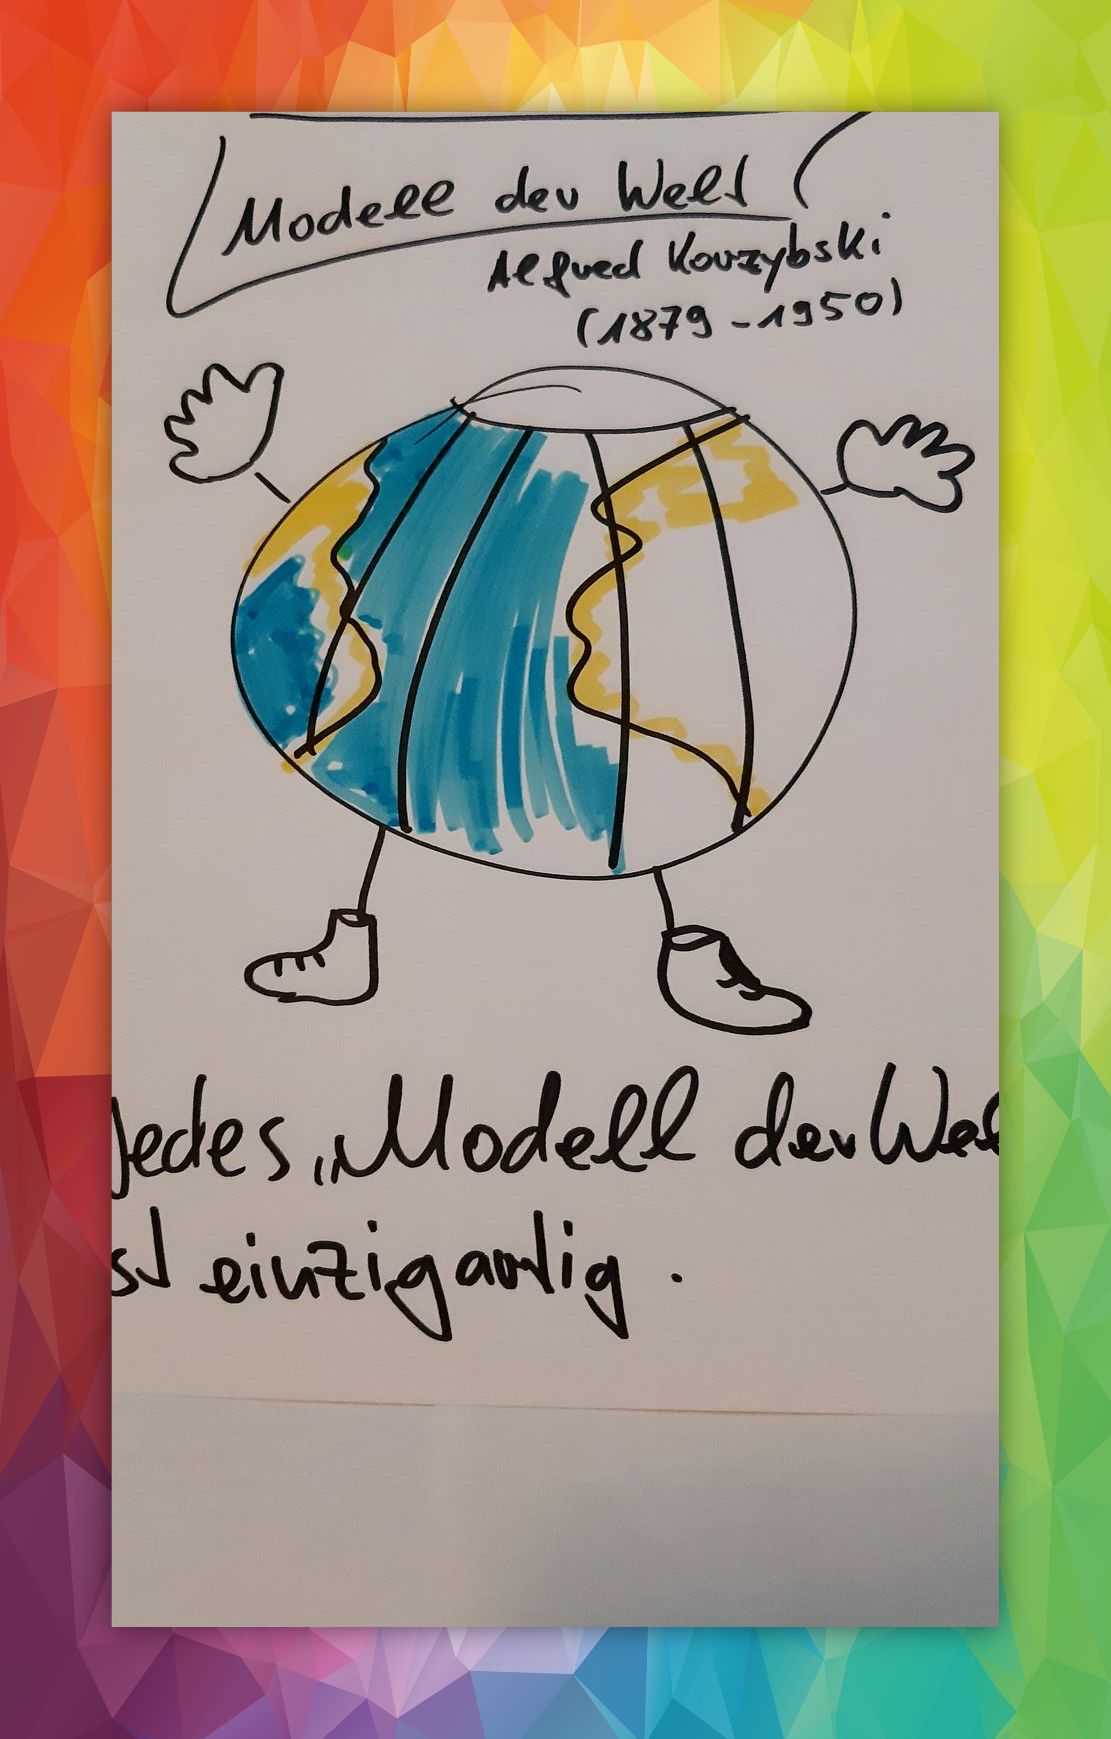 Modell der Welt
Alfred Korzybski
(1879-1950)
Jedes „Modell der Wel
st einzigartig.